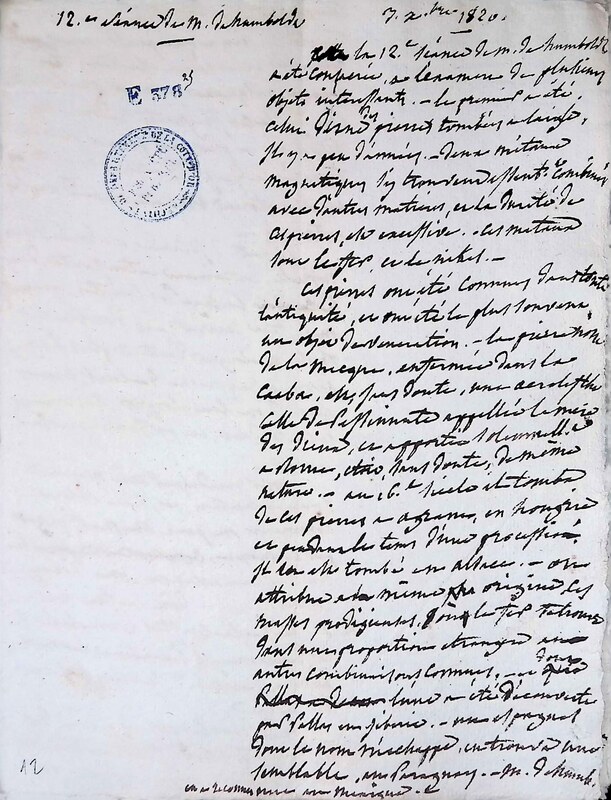 12.e séance de M. de humboldt
7. Xbre 1820.
E 378 25
la 12.e séance de M. de humboldt
a été consacrée, a l'examen de plusieurs
objets interessants. - le premier a été
celui d'une pierres tombées a
il y a peu d'années. - deux métaux
magnetiques s'y trouvent combinés
avec d'autres matieres, et la dureté de
ces pierres, est excessive. - ces metaux
sont le fer, et le nikel. -
ces pierres ont été connues dans toute
l'antiquité, et ont été le plus souvent
un objet de veneration. - la pierre noire
de la mecque, enfermée dans la
Caaba, est, sans doute, une aerolithe
celle de Pessinunte appellée la mere
des dieux, et apportée solemnellement
a Rome, était, sans doute, de même
nature. - au 16.e siecle il tomba
de ces pierres a agram, en hongrie
et pendant le tems d'une procession,
il en est tombé en alsace. - on
attribue a la même origine, les
masses prodigieuses, dont le fer se trouve
dans une proportion etrangere aux
autres combinaisons connues. -
l'une a été découverte
par Pallas en siberie. - un espagnol
dont le nom m'echappe, en trouva une
semblable, au Paraguay. - M. de humb.
en a reconnu une au Mexique.
12